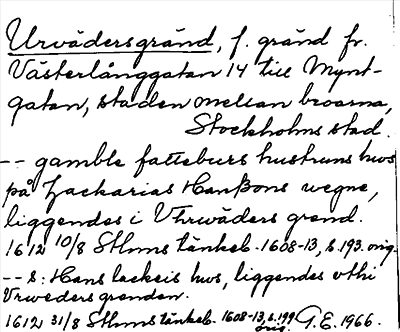 Urvädersgränd, f. gränd fr.
Västerlånggatan 14 till Mynt-
gatan, staden mellan broarna,
Stockholms stad.
-- gamble fatteburs hustruns hws
på Zackarias Hanßons wegne,
liggendes i Vhrwäders grend.
1612 10/8 Sthms tänkeb. 1608-13, s. 193. orig.
-- S: Hans lackeis hws, liggendes vthi
Vrweders grenden.
1612 31/8 Sthms tänkeb. 1608-13, s. 199 orig. G.E. 1966.